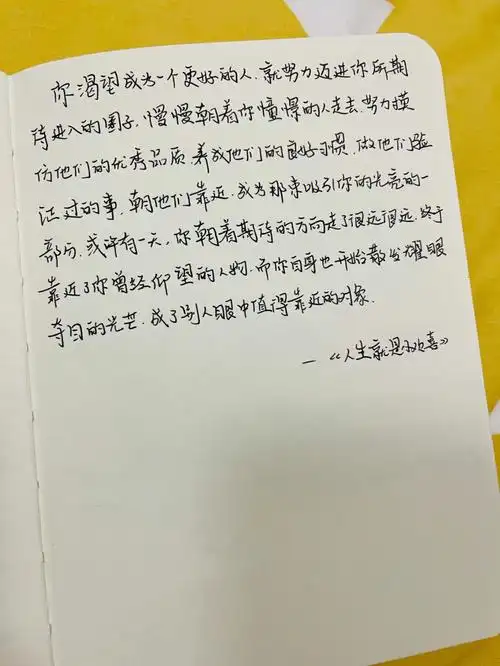 你渴望成为一个更好的人.就努力迈进你所期
待进入的圈子.慢慢朝着你憧憬的人走去.努力模
仿他们的优秀品质.养成他们的良好习惯.做他们验
证过的事.朝他们靠近.成为那束吸引你的光亮的一
部分.或许有一天,你朝着期待的方向走了很远很远.终于
靠近了你曾经仰望的人物.而你自身也开始散发耀眼
夺目的光芒.成了别人眼中值得靠近的对象.
—《人生就是小欢喜》